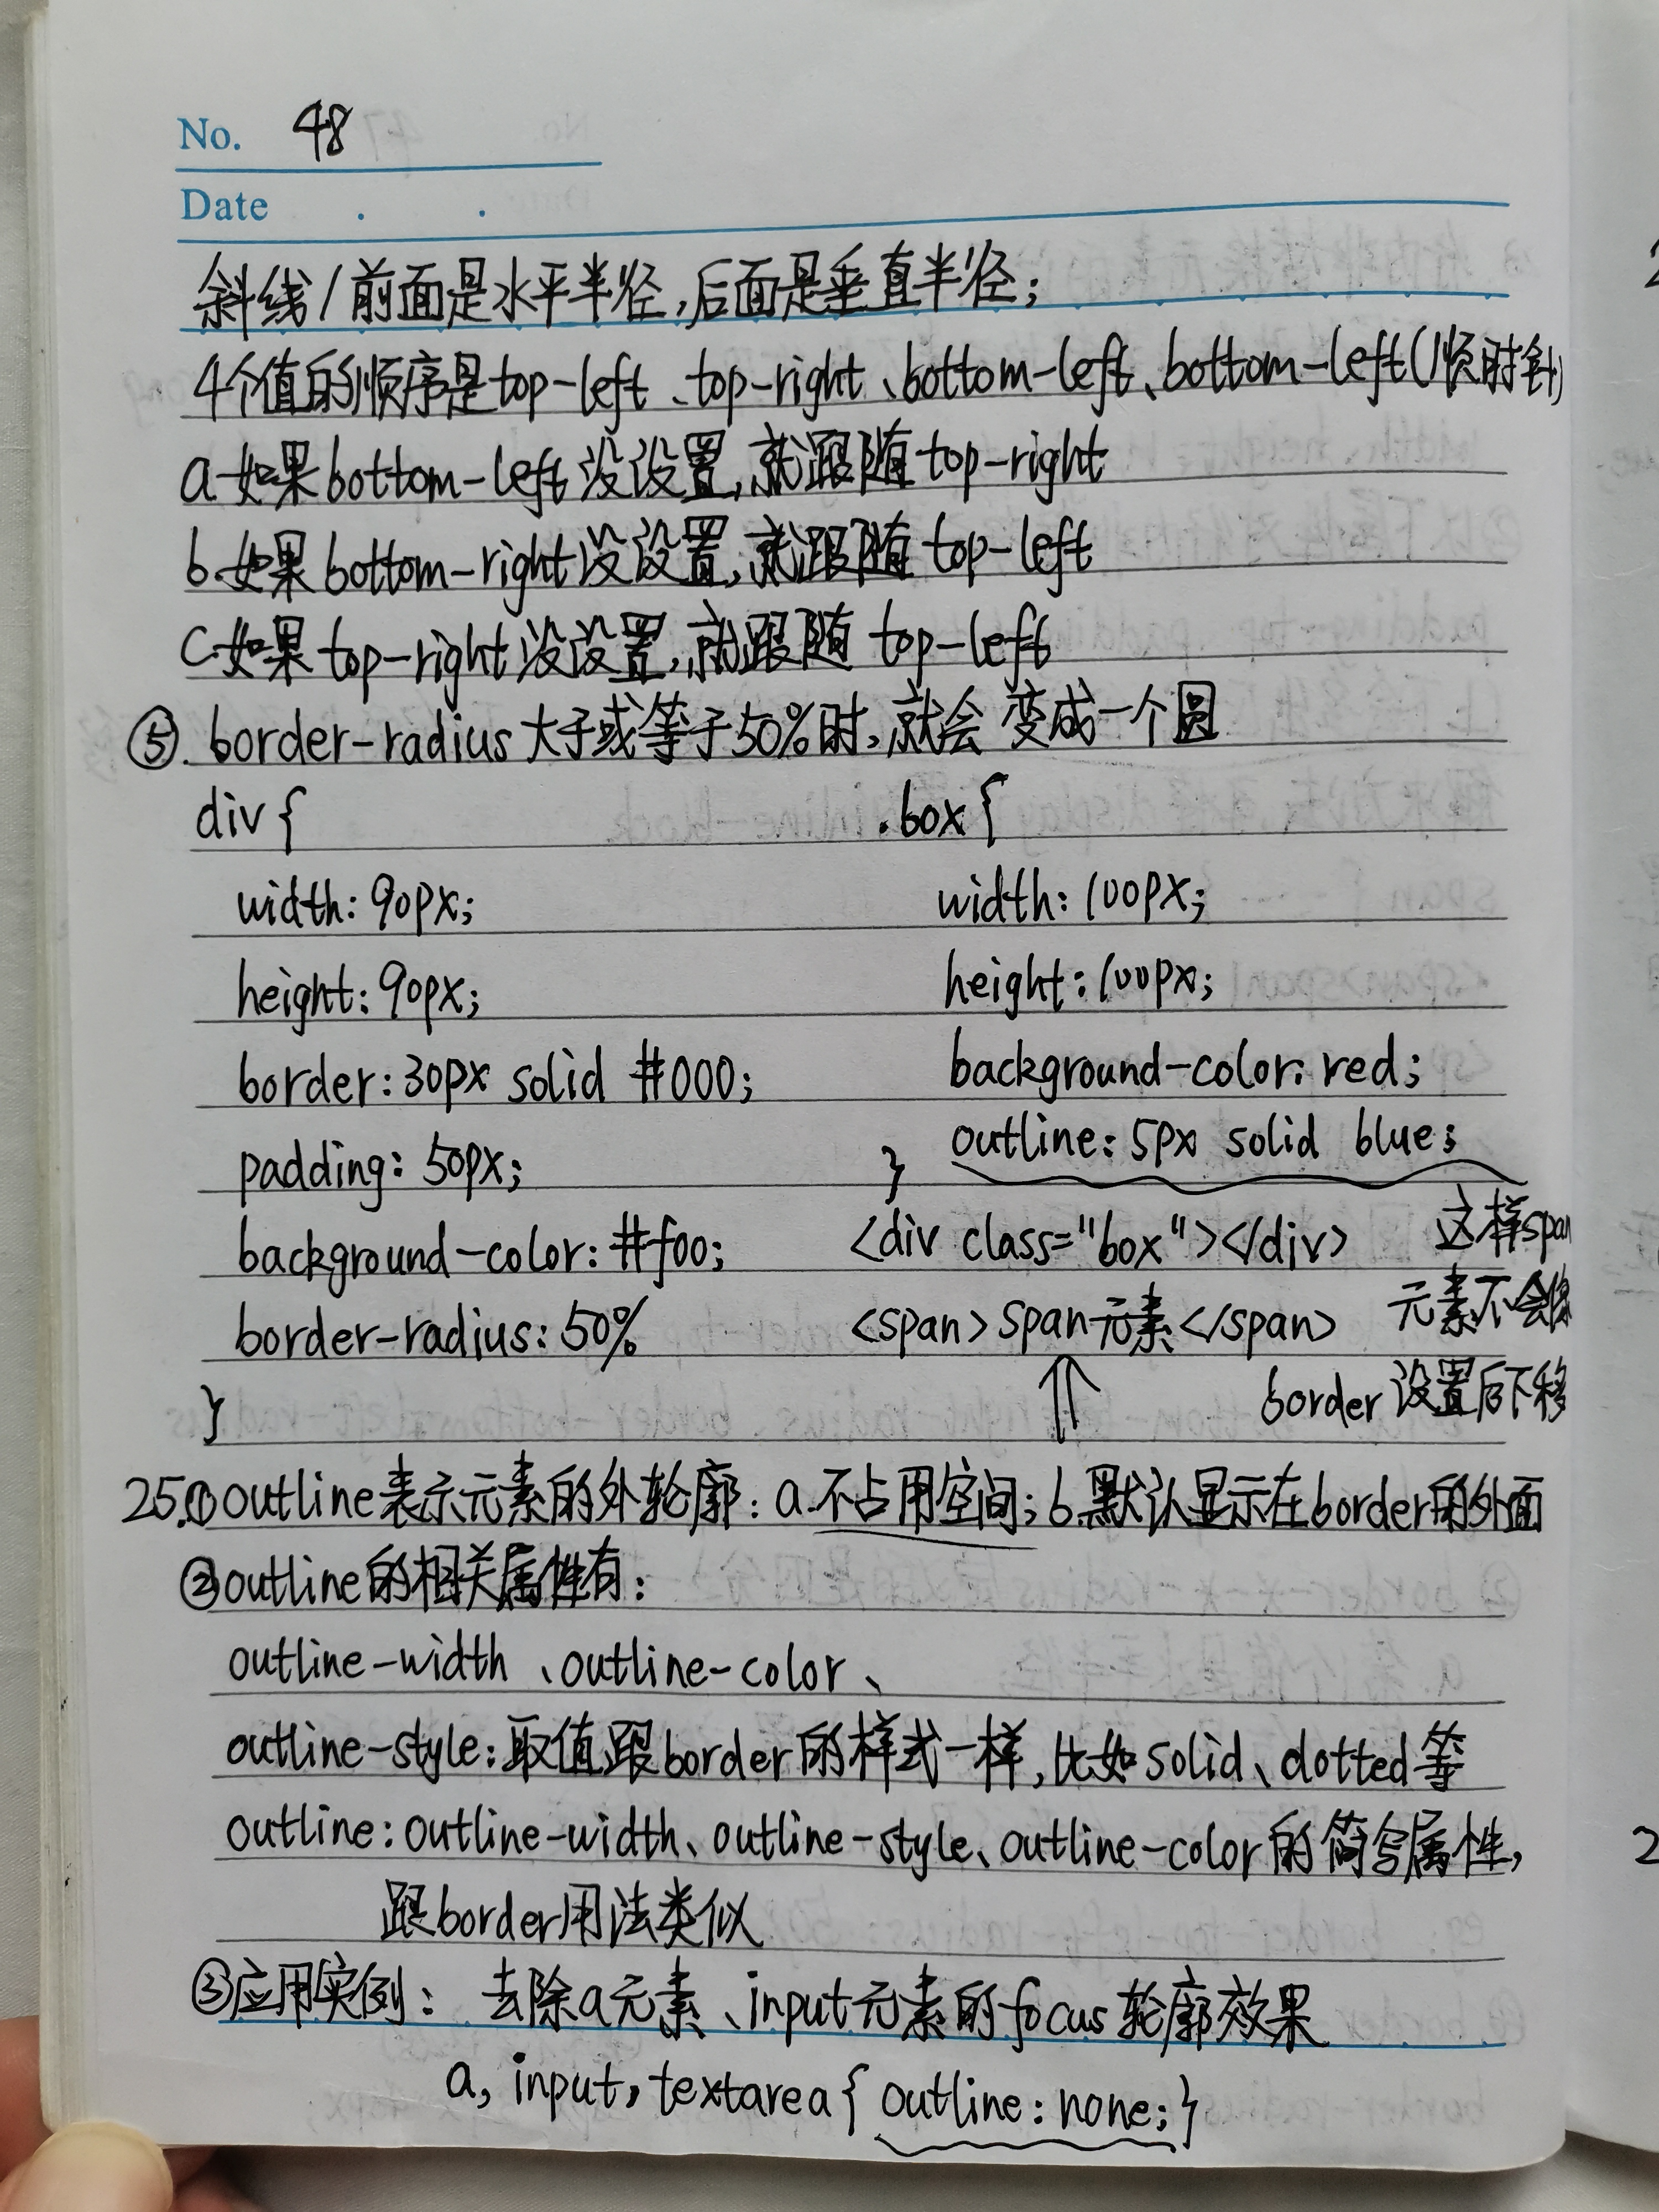 No. 48
Date . .
斜线/前面是水平半径,后面是垂直半径;
4个值的顺序是top-left、top-right、bottom-left、bottom-left(顺时针)
a.如果bottom-left没设置,就跟随top-right
b.如果bottom-right没设置,就跟随top-left
c.如果top-right没设置,就跟随top-left
⑤. border-radius大于或等于50%时,就会变成一个圆
div{
width: 90px;
height: 90px;
border: 30px solid #000;
padding: 50px;
background-color: #f00;
border-radius: 50%
}
.box{
width: 100px;
height: 100px;
background-color: red;
outline: 5px solid blue;
}
<div class="box"></div>
<span>span元素</span>
这样span
元素不会像
border设置后下移
25.①outline表示元素的外轮廓: a.不占用空间; b.默认显示在border的外面
②outline的相关属性有:
outline-width、outline-color、
outline-style: 取值跟border的样式一样,比如solid、dotted等
outline: outline-width、outline-style、outline-color的简写属性,
跟border用法类似
③应用实例: 去除a元素、input元素的focus轮廓效果
a, input, textarea{ outline: none; }